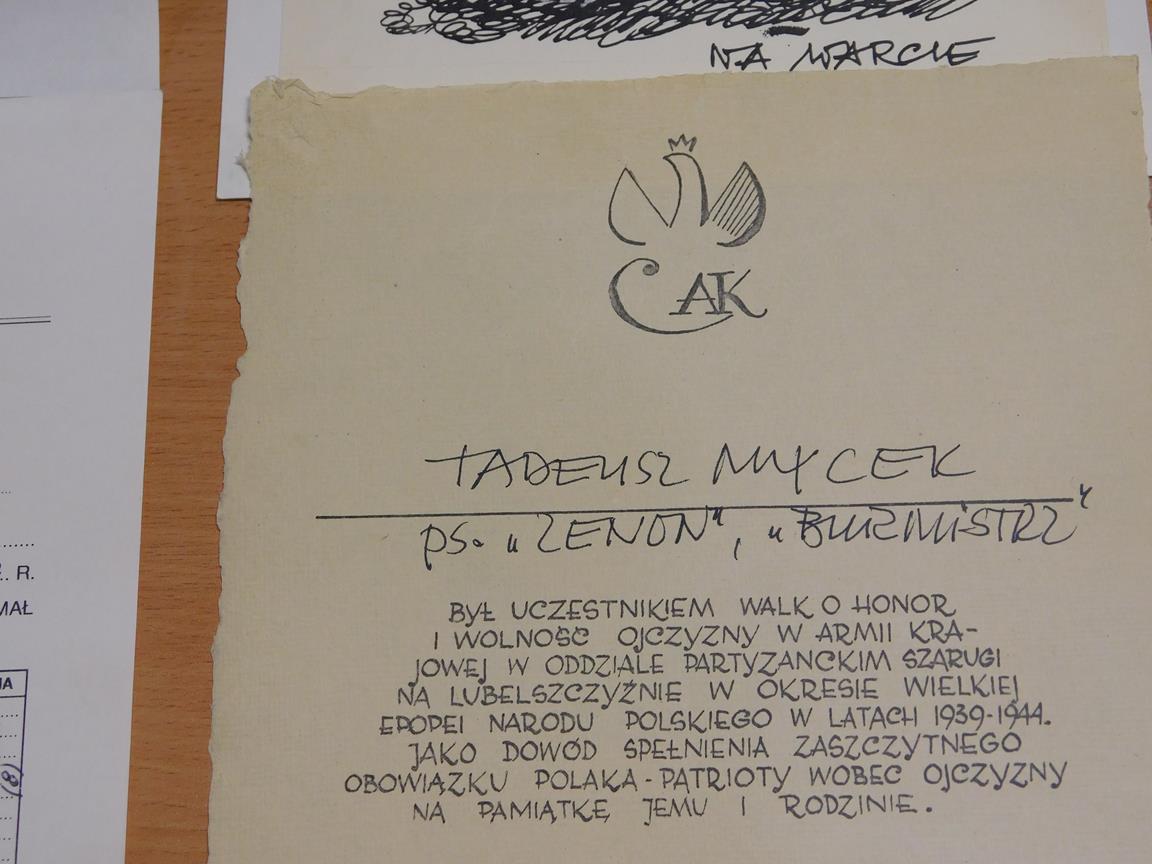 NA WARCIE
CAK
TADEUSZ MYCEK
ps. „ZENON”, „BURMISTRZ”
BYŁ UCZESTNIKIEM WALK O HONOR
I WOLNOŚĆ OJCZYZNY W ARMII KRA-
JOWEJ W ODDZIALE PARTYZANCKIM SZARUGI
NA LUBELSZCZYŹNIE W OKRESIE WIELKIEJ
EPOPEI NARODU POLSKIEGO W LATACH 1939-1944.
JAKO DOWÓD SPEŁNIENIA ZASZCZYTNEGO
OBOWIĄZKU POLAKA-PATRIOTY WOBEC OJCZYZNY
NA PAMIĄTKĘ JEMU I RODZINIE.
R.
MAŁ
(8)